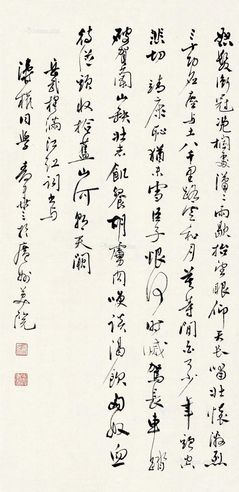 怒髮衝冠憑欄處瀟〻雨歇抬望眼仰天長嘯壯懷激烈
三十功名塵與土八千里路雲和月莫等閒白了少年頭空
悲切靖康恥猶未雪臣子恨何時滅駕長車踏
破賀蘭山缺壯志飢餐胡虜肉笑談渴飲匈奴血
待從頭收拾舊山河朝天闕
岳武穆滿江紅詞書為
同學於廣州美院